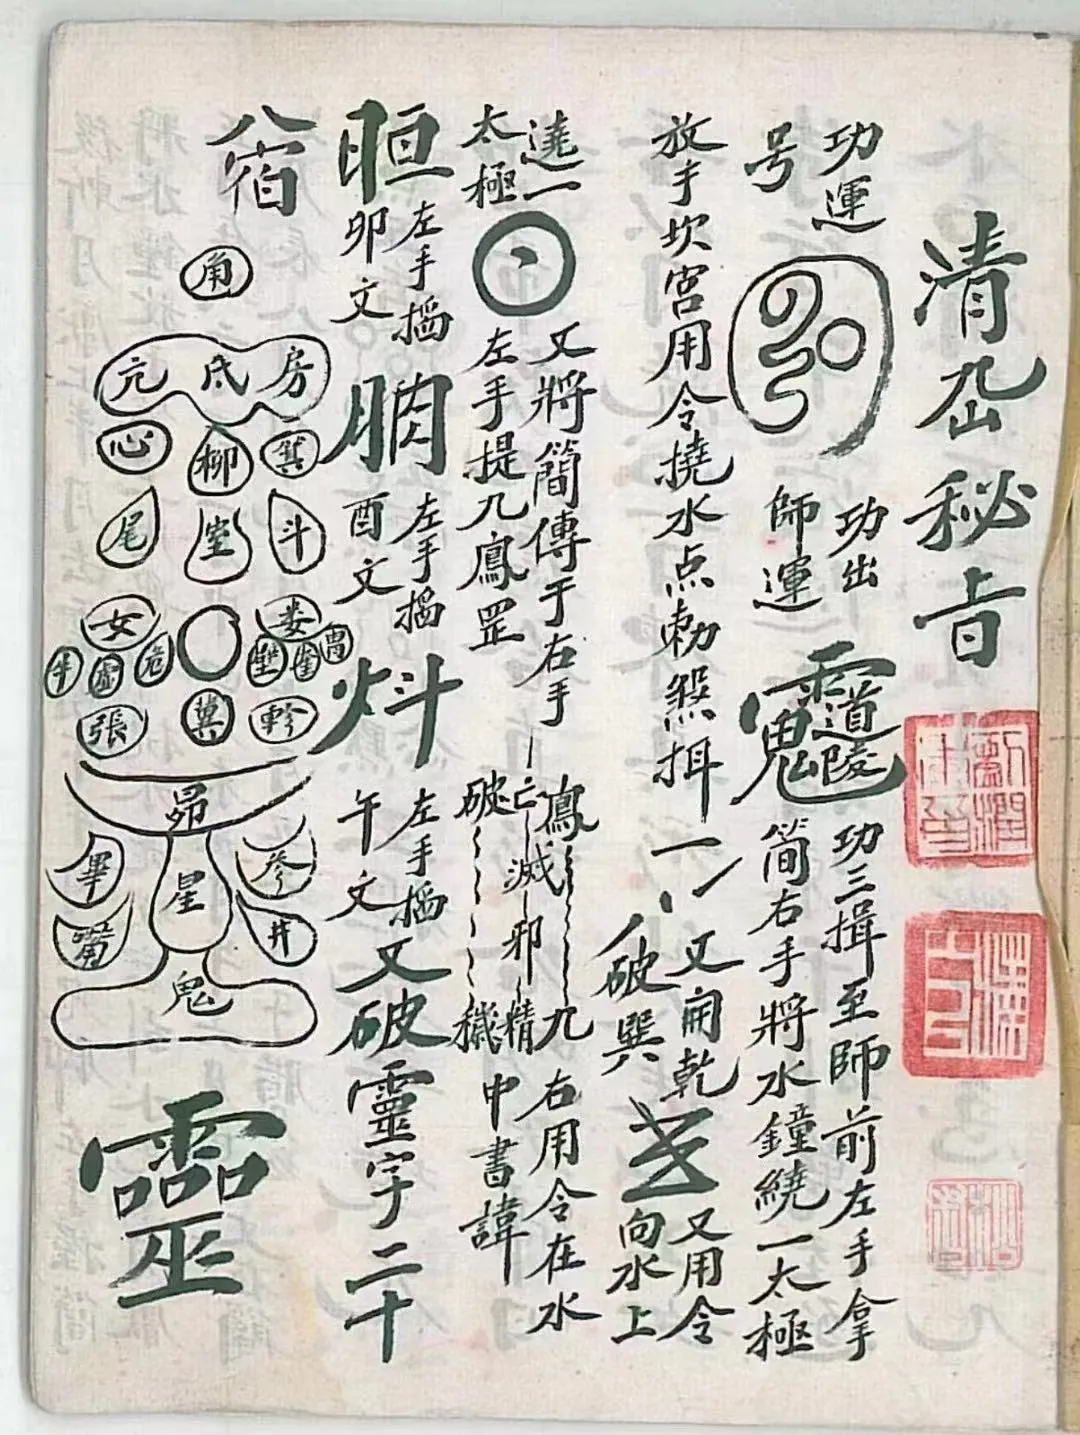 清㞮秘旨
功運
号
功出
師運
功三揖至師前左手拿
简右手將水鐘繞一太極
放手坎宮用令撓水点勅煞揖一
又開乾
破巽
又用令
向水上
遶一
太極
又將簡傳于右手
左手提九鳳罡
鳳
亡滅邪精
破
九
穢
右用令在水
中書諱
晅
左手搯
卯文
朒
左手搯
酉文
炓
左手搯
午文
又破靈字二十
八宿
角
亢 氐 房
心 柳 箕
尾 室 斗
女 娄
牛 虛 危 壁 奎 胃
張 翼 軫
昴
畢 星 参
觜 井
鬼
靈